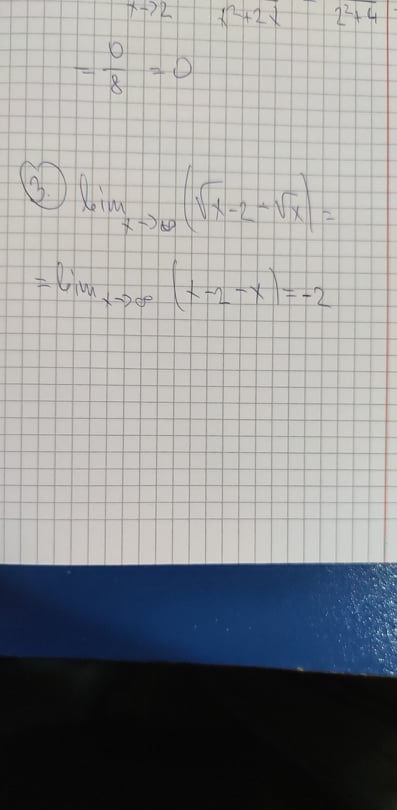 x→2 x²+2x 2²+4
= 0/8 = 0
3. lim x→∞ (√x-2-√x) =
= lim x→∞ (x-2-x) = -2